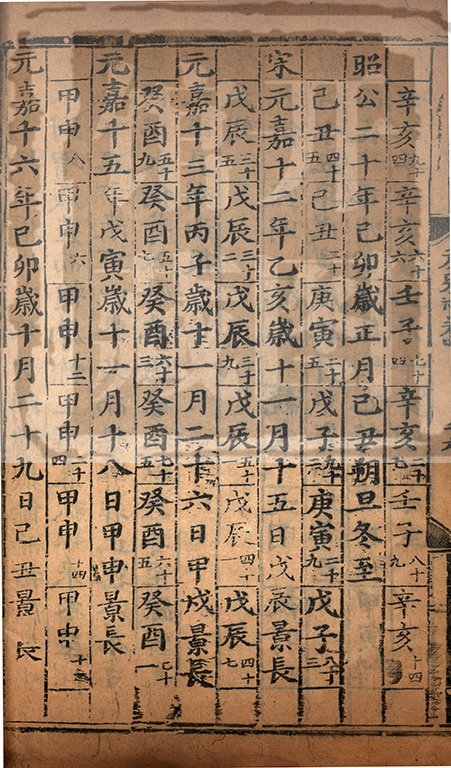 辛亥九十四辛亥六十六壬子七十四辛亥壬子八十九辛亥十四
昭公二十年己卯歲正月己丑朔旦冬至
己丑四十五己丑庚寅二十五戊子庚寅二十九戊子八十三
宋元嘉十二年乙亥歲十一月十五日戊辰景長
戊辰三十五戊辰三十二戊辰三十九戊辰戊辰戊辰四十七
元嘉十三年丙子歲十一月二十六日甲戌景長
癸酉五十九癸酉五十七癸酉六十三癸酉七十五癸酉六十五癸酉七十一
元嘉十五年戊寅歲十一月十八日甲申景長
甲申八甲申六甲申十二甲申二十四甲申十四甲申
元嘉十六年己卯歲十月二十九日己丑景長